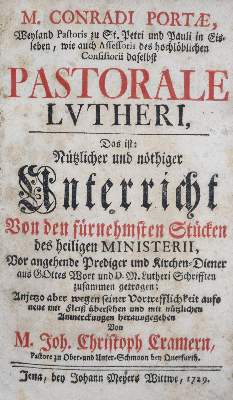 M. CONRADI PORTÆ,
Weyland Pastoris zu St. Petri und Pauli in Eis-
leben, wie auch Assessoris des hochlöblichen
Consistorii daselbst
PASTORALE
LVTHERI,
Das ist:
Nützlicher und nöthiger
Unterricht
Von den fürnehmsten Stücken
des heiligen MINISTERII,
Vor angehende Prediger und Kirchen-Diener
aus GOttes Wort und D. M. Lutheri Schrifften
zusammen getragen;
Anjetzo aber wegen seiner Vortrefflichkeit aufs
neue mit Fleiß übersehen und mit nützlichen
Anmerckungen herausgegeben
Von
M. Joh. Christoph Cramern,
Pastore zu Ober-und Unter-Schmoon bey Querfurth.
Jena, bey Johann Meyers Wittwe, 1729.